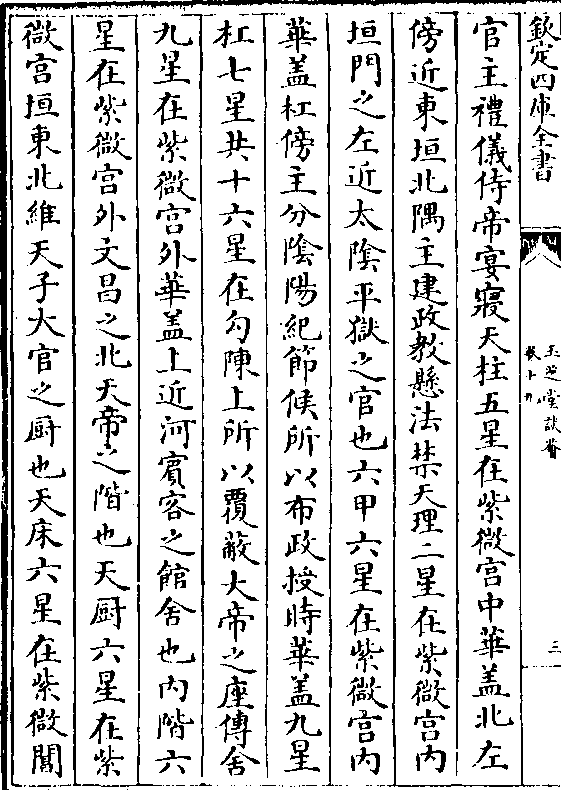 欽定四庫全書
玉芝堂談薈
三
官主禮儀侍帝宴寢天柱五星在紫微宮中華盖北左
傍近東垣北隅主建政教懸法禁天理二星在紫微宮内
垣門之左近太陰平獄之官也六甲六星在紫微宮内
華盖杠傍主分陰陽紀節候所以布政授時華盖九星
杠七星共十六星在勾陳上所以覆蔽大帝之座傳舍
九星在紫微宮外華盖上近河賓客之館舍也内階六
星在紫微宮外文昌之北天帝之階也天厨六星在紫
微宮垣東北維天子大官之厨也天床六星在紫微閶